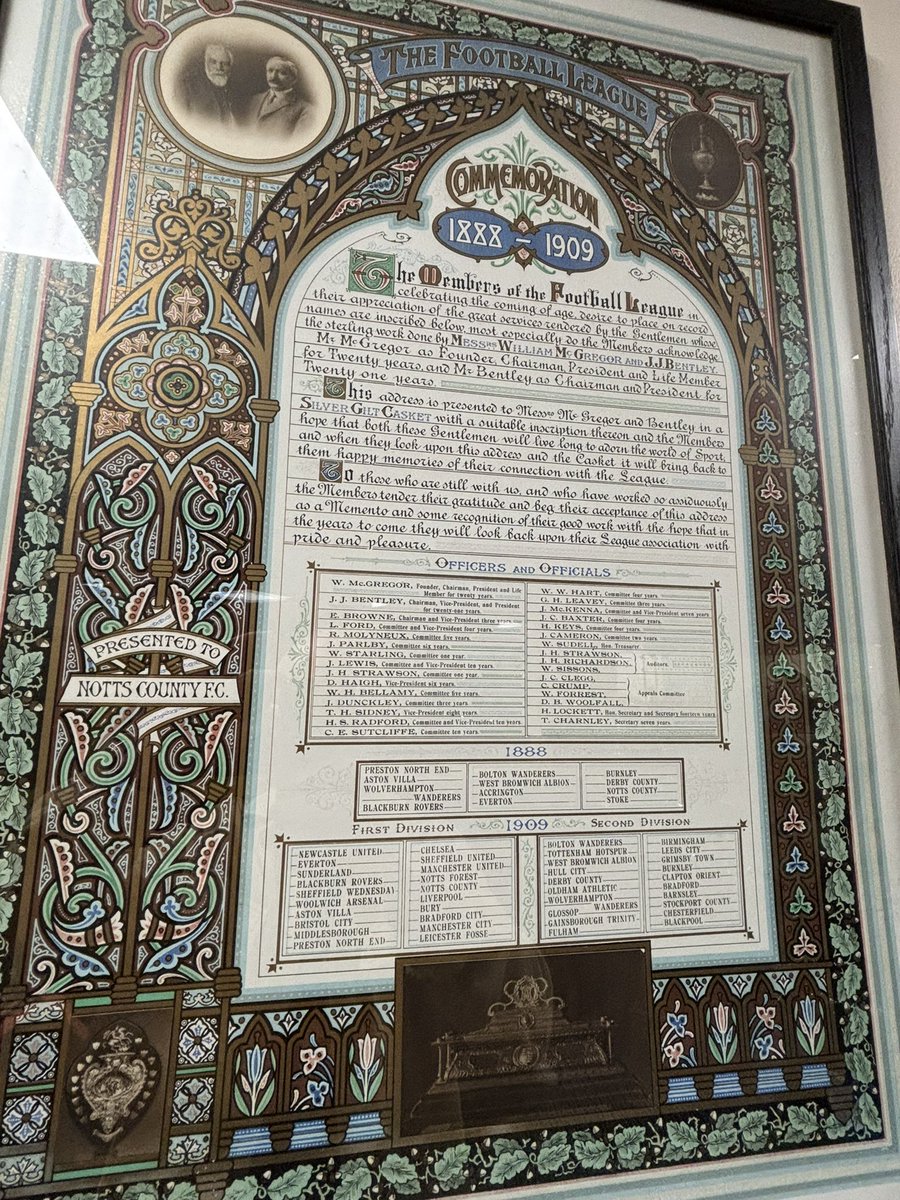 THE FOOTBALL LEAGUE
COMMEMORATION
1888 – 1909
The Members of the Football League in
celebrating the coming of age, desire to place on record
their appreciation of the great services rendered by the Gentlemen whose
names are inscribed below, most especially do the Members acknowledge
the sterling work done by MESSRS WILLIAM MCGREGOR AND J.J. BENTLEY.
Mr McGregor as Founder, Chairman, President and Life Member
for Twenty years, and Mr Bentley as Chairman and President for
Twenty one years.
This address is presented to Messrs McGregor and Bentley in a
SILVER GILT CASKET with a suitable inscription thereon and the Members
hope that both these Gentlemen will live long to adorn the world of Sport,
and when they look upon this address and the Casket it will bring back to
them happy memories of their connection with the League
To those who are still with us, and who have worked so assiduously
the Members tender their gratitude and beg their acceptance of this address
as a Memento and some recognition of their good work with the hope that in
the years to come they will look back upon their League association with
pride and pleasure.
OFFICERS AND OFFICIALS
W. MCGREGOR, Founder, Chairman, President and Life
Member for twenty years.
J. J. BENTLEY, Chairman, Vice-President, and President
for twenty-one years.
E. BROWNE, Chairman and Vice-President three years.
L. FORD, Committee and Vice-President four years.
R. MOLYNEUX, Committee five years.
J. PARLBY, Committee six years.
W. STARLING, Committee one year.
J. LEWIS, Committee and Vice-President ten years.
J. H. STRAWSON, Committee one year.
D. HAIGH, Vice-President six years.
W. H. BELLAMY, Committee five years.
J. DUNCKLEY, Committee three years.
T. H. SIDNEY, Vice-President eight years.
H. S. RADFORD, Committee and Vice-President ten years.
C. E. SUTCLIFFE, Committee ten years.
W. W. HART, Committee four years.
G. H. LEAVEY, Committee three years.
J. MCKENNA, Committee and Vice-President seven years.
J. C. BAXTER, Committee four years.
H. KEYS, Committee four years.
J. CAMERON, Committee two years.
W. SUDELL, Hon. Treasurer.
J. H. STRAWSON,
J. H. RICHARDSON, Auditors.
W. SISSONS,
J. C. CLEGG,
C. CRUMP,
W. FORREST, Appeals Committee
D. B. WOOLFALL,
H. LOCKETT, Hon. Secretary and Secretary fourteen years
T. CHARNLEY, Secretary seven years.
PRESENTED TO
NOTTS COUNTY F.C.
1888
PRESTON NORTH END
ASTON VILLA
WOLVERHAMPTON
WANDERERS
BLACKBURN ROVERS
BOLTON WANDERERS
WEST BROMWICH ALBION
ACCRINGTON
EVERTON
BURNLEY
DERBY COUNTY
NOTTS COUNTY
STOKE
FIRST DIVISION 1909 SECOND DIVISION
NEWCASTLE UNITED
EVERTON
SUNDERLAND
BLACKBURN ROVERS
SHEFFIELD WEDNESDAY
WOOLWICH ARSENAL
ASTON VILLA
BRISTOL CITY
MIDDLESBOROUGH
PRESTON NORTH END
CHELSEA
SHEFFIELD UNITED
MANCHESTER UNITED
NOTTS FOREST
NOTTS COUNTY
LIVERPOOL
BURY
BRADFORD CITY
MANCHESTER CITY
LEICESTER FOSSE
BOLTON WANDERERS
TOTTENHAM HOTSPUR
WEST BROMWICH ALBION
HULL CITY
DERBY COUNTY
OLDHAM ATHLETIC
WOLVERHAMPTON
WANDERERS
GLOSSOP
GAINSBOROUGH TRINITY
FULHAM
BIRMINGHAM
LEEDS CITY
GRIMSBY TOWN
BURNLEY
CLAPTON ORIENT
BRADFORD
BARNSLEY
STOCKPORT COUNTY
CHESTERFIELD
BLACKPOOL